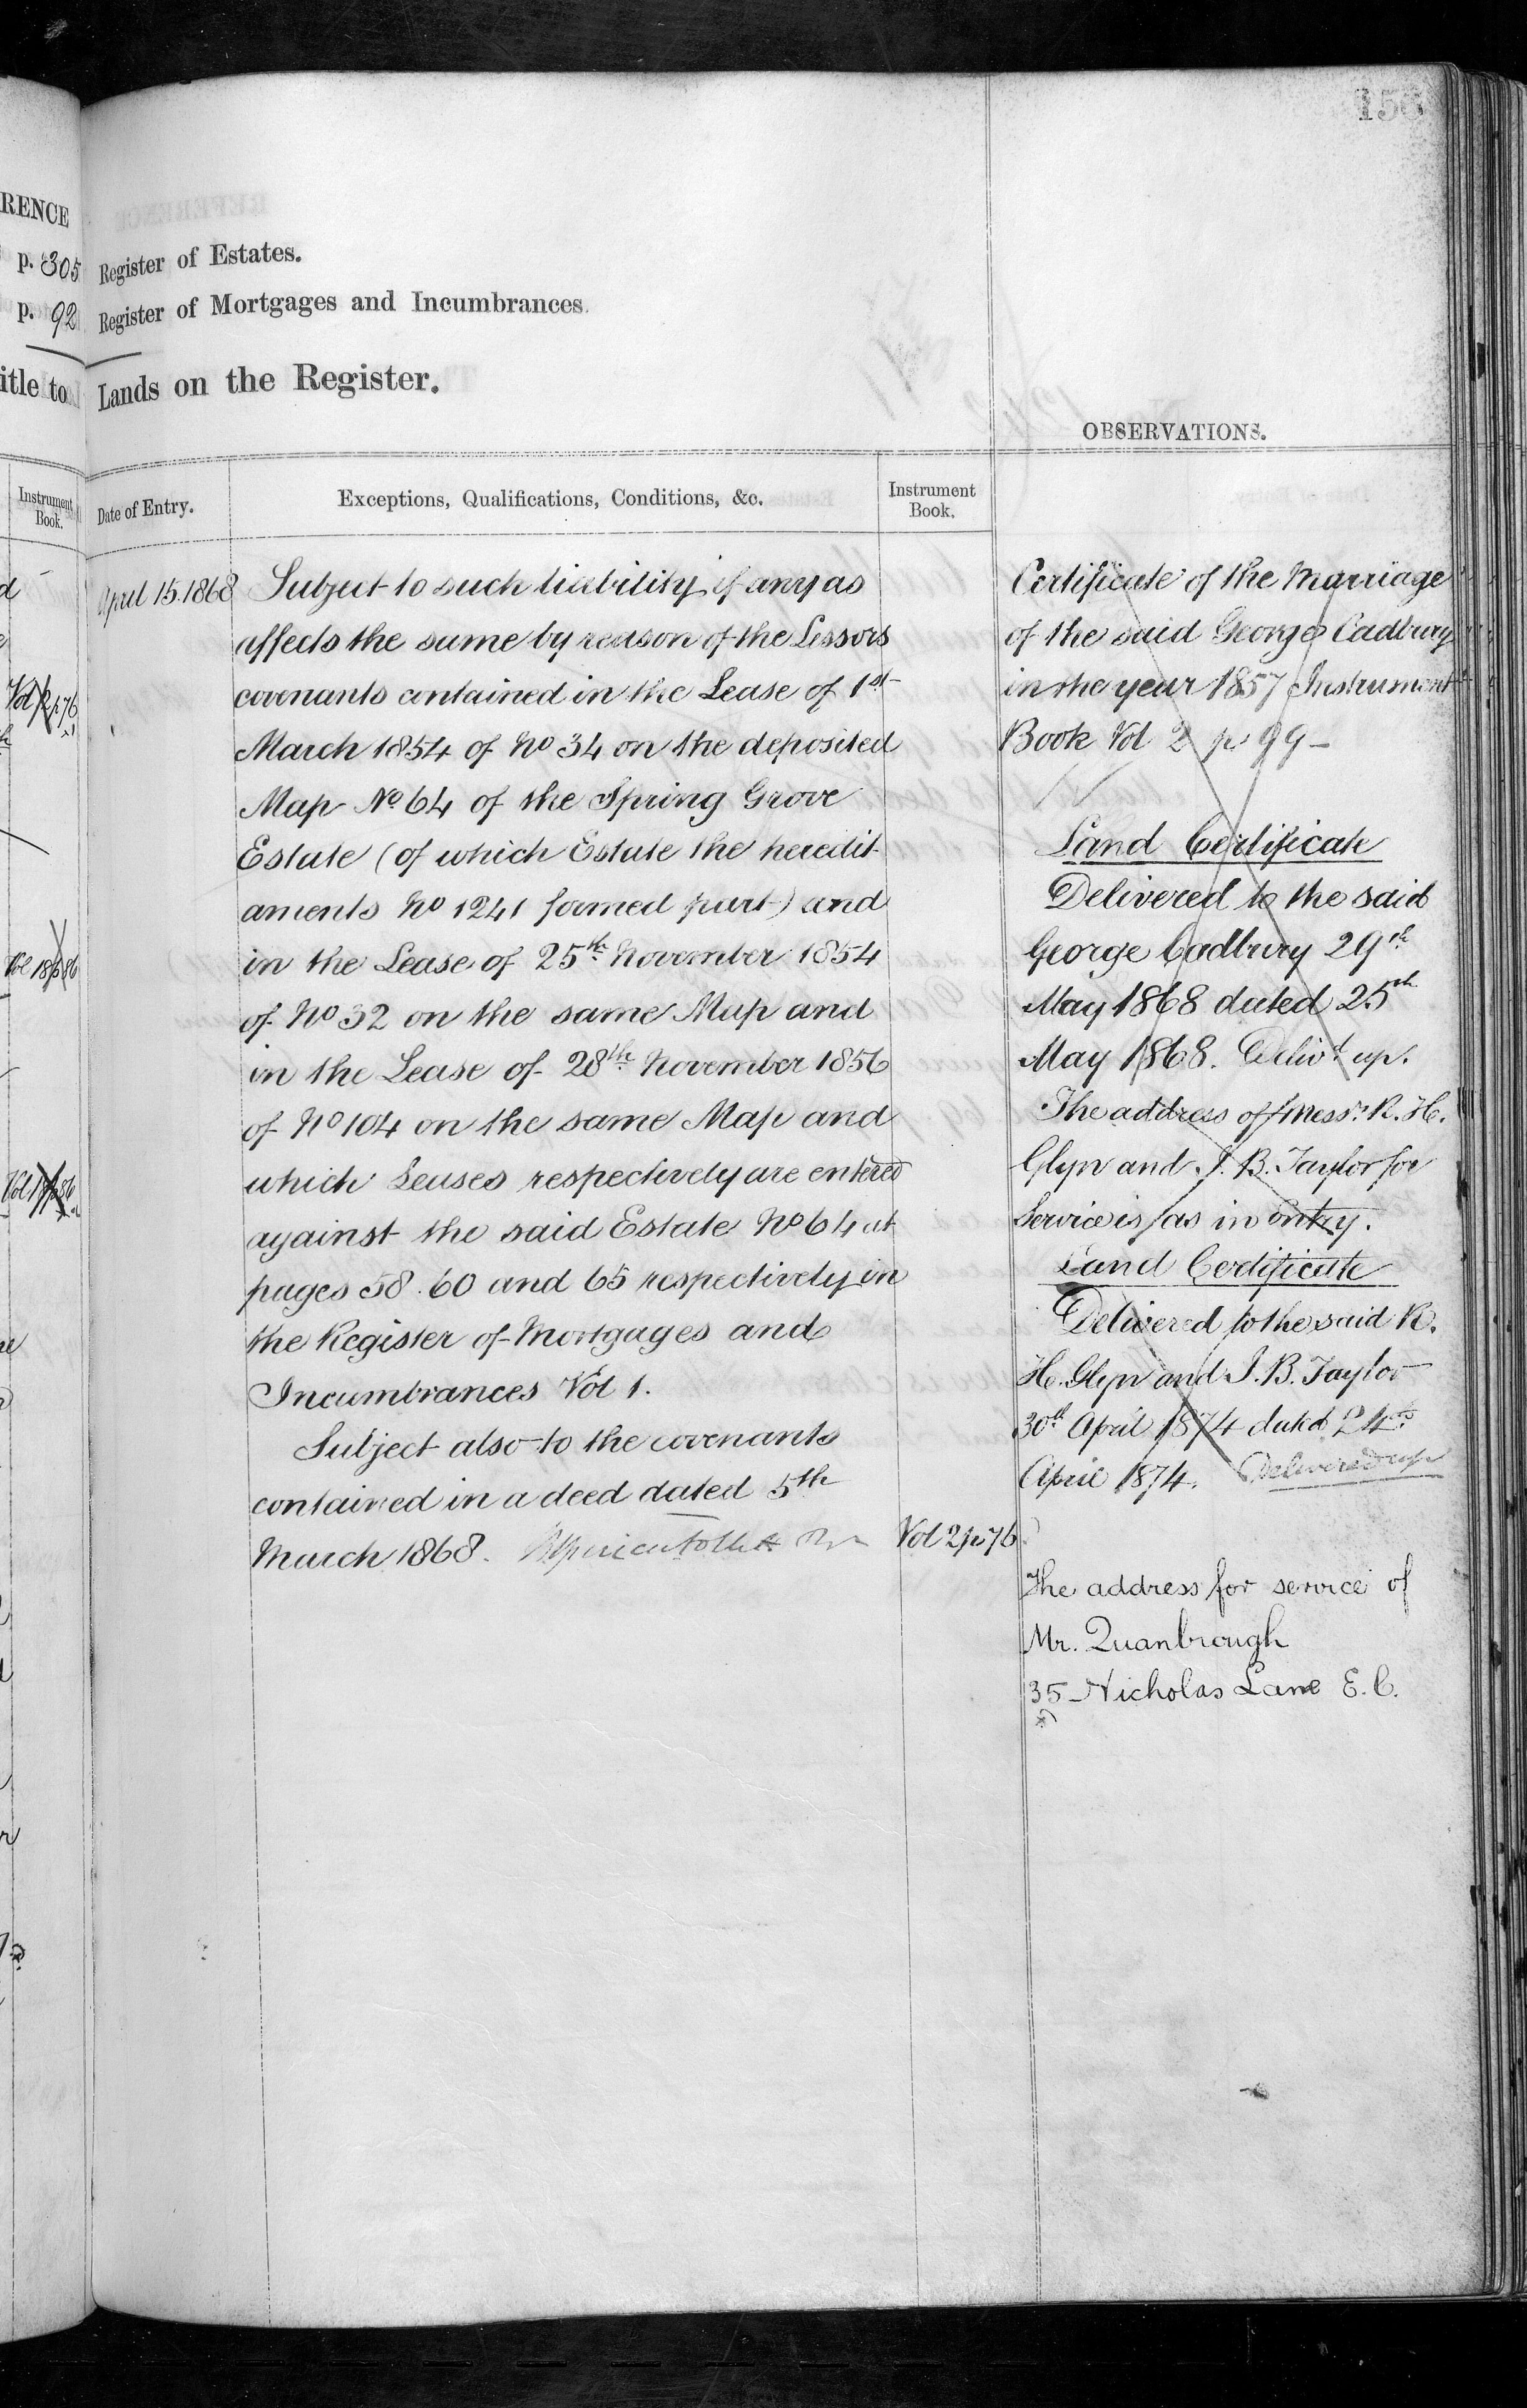 156
RENCE
p. 305 Register of Estates.
p. 92 Register of Mortgages and Incumbrances.
itle to Lands on the Register.
OBSERVATIONS.
Instrument Book.
Date of Entry.
Exceptions, Qualifications, Conditions, &c.
Instrument Book.
Vol 2 p 76
Vol 18 p 86
April 15. 1868
Subject to such liability if any as
affects the same by reason of the Lessors
covenants contained in the Lease of 1st
March 1854 of No 34 on the deposited
Map No 64 of the Spring Grove
Estate (of which Estate the heredit
aments No 1241 formed part) and
in the Lease of 25th November 1854
of No 32 on the same Map and
in the Lease of 28th November 1856
of No 104 on the same Map and
which Leases respectively are entered
against the said Estate No 64 at
pages 58. 60 and 65 respectively in
the Register of Mortgages and
Incumbrances Vol 1.
Subject also to the covenants
contained in a deed dated 5th
March 1868.
Vol 2 p 76
Certificate of the Marriage
of the said George Cadbury
in the year 1857 Instrument
Book Vol 2 p. 99 -
Land Certificate
Delivered to the said
George Cadbury 29th
May 1868 dated 25th
May 1868. Delivd up.
The address of Messrs R. H.
Glyn and J. B. Taylor for
Service is as in entry.
Land Certificate
Delivered to the said R.
H. Glyn and J. B. Taylor
30th April 1874 dated 24th
April 1874. Delivered up
The address for service of
Mr. Quanbrough
35 Nicholas Lane E.C.